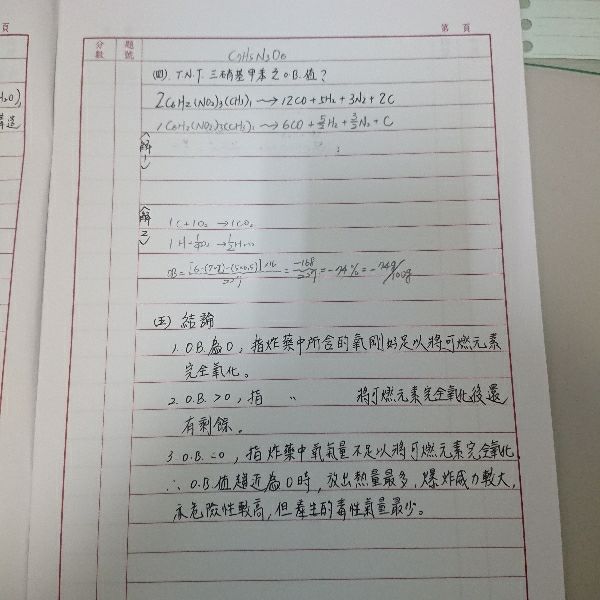 頁
第 頁
分數
題號
C7H5N3O6
(四). T.N.T. 三硝基甲苯之O.B.值?
2C6H2(NO2)3(CH3)1 → 12CO + 5H2 + 3N2 + 2C
1C6H2(NO2)3(CH3)1 → 6CO + 5/2H2 + 3/2N2 + C
〈解1〉
〈解2〉
1C + 1O2 → 1CO2
(五) 結論
1. O.B.為0, 指炸藥中所含的氧剛好足以將可燃元素
完全氧化。
2. O.B. >0, 指 〃 將可燃元素完全氧化後還
有剩餘。
3. O.B. <0, 指炸藥中氧氣量不足以將可燃元素完全氧化
∴ O.B.值趨近為0時, 放出熱量最多, 爆炸威力較大,
危險性較高, 但產生的毒性氣量最少。